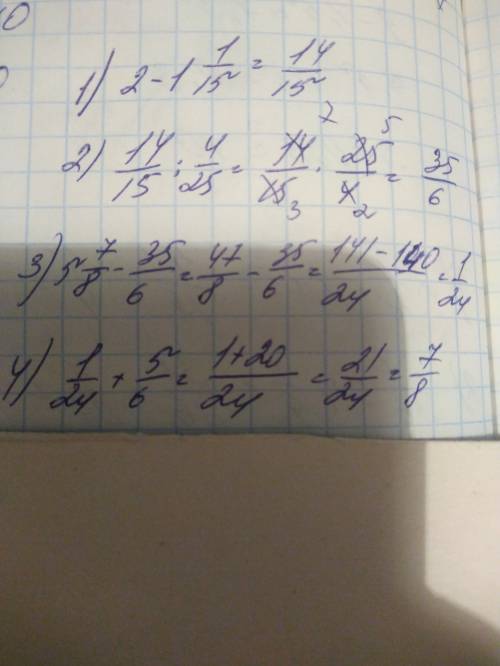 1) 2 - 1 1/15 = 14/15
2) 14/15 : 4/25 = 14/15 · 25/4 = 35/6
7 5 3 2
3) 5 7/8 - 35/6 = 47/8 - 35/6 = 141-140/24 = 1/24
4) 1/24 + 5/6 = 1+20/24 = 21/24 = 7/8